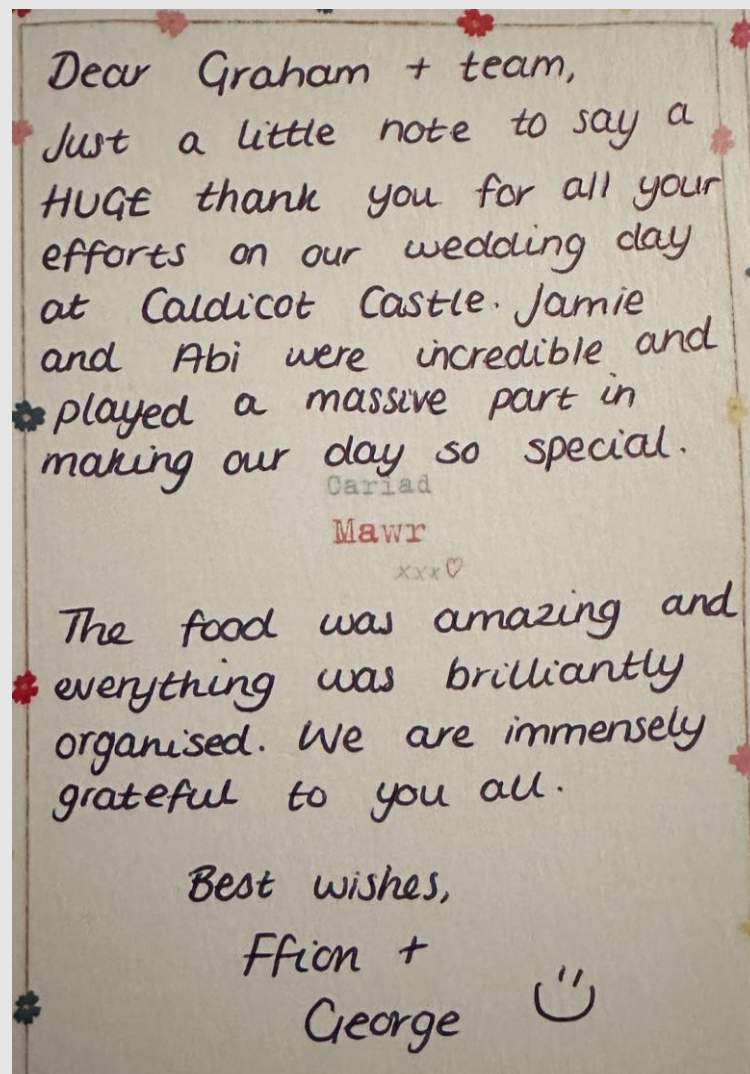 Dear Graham + team,
Just a little note to say a
HUGE thank you for all your
efforts on our wedding day
at Caldicot Castle. Jamie
and Abi were incredible and
played a massive part in
making our day so special.
Cariad
Mawr
xxx♡
The food was amazing and
everything was brilliantly
organised. We are immensely
grateful to you all.
Best wishes,
Ffion +
George